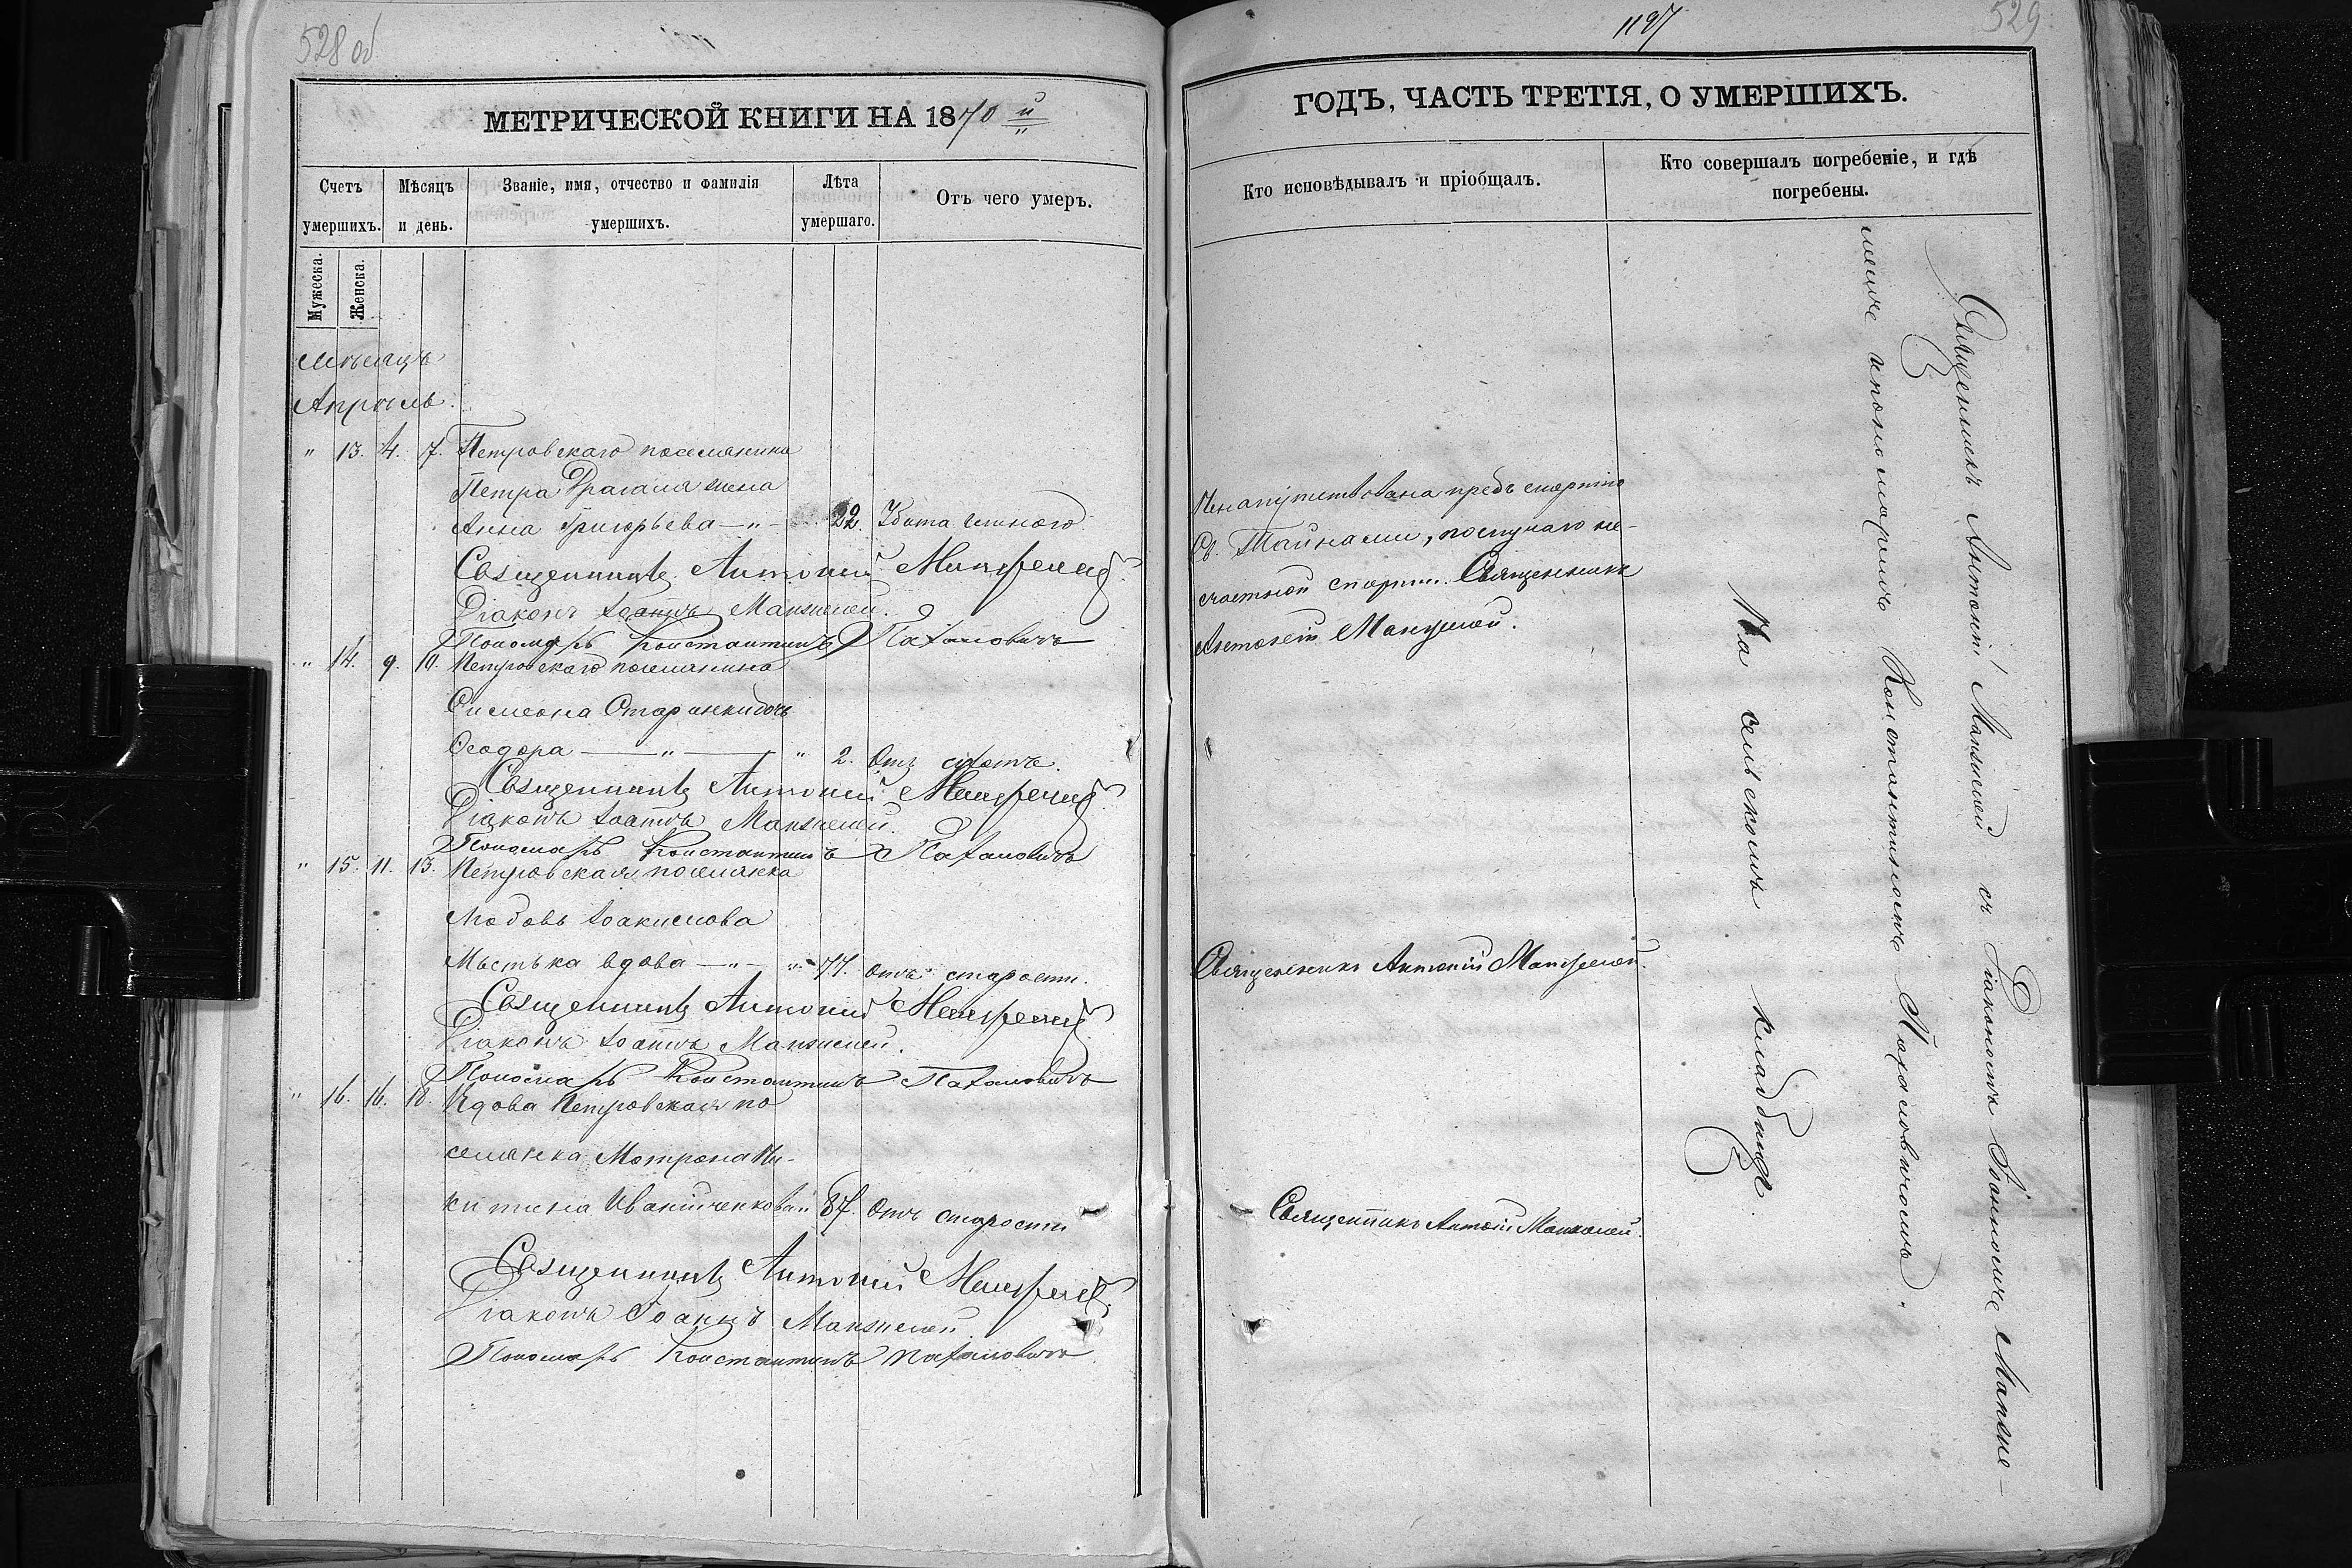 528 об
МЕТРИЧЕСКОЙ КНИГИ НА 1870 й
Счетъ умершихъ.
Мѣсяцъ и день.
Званіе, имя, отчество и фамилія умершихъ.
Лѣта умершаго.
Отъ чего умеръ.
Мужеска.
Женска.
Мѣсяцъ
Апрѣль.
" 13. 4. 7. Петровскаго поселянина
Петра Драгана жена
Анна Григорьева —"— 22. Убита
Священникъ Антоній
Діаконъ Іоаннъ Манжелей.
Пономарь Константинъ Пахаловичъ
" 14. 9. 10. Петровскаго поселянина
Симеона дочь
Ѳеодора —"— " 2. Отъ
Священникъ Антоній
Діаконъ Іоаннъ Манжелей.
Пономарь Константинъ Пахаловичъ
" 15. 11. 13. Петровская поселянка
Любовь Іоакимова
вдова —"— " 77. Отъ старости.
Священникъ Антоній
Діаконъ Іоаннъ Манжелей.
Пономарь Константинъ Пахаловичъ
" 16. 16. 18. Вдова Петровская по
селянка Матрона Ни-
китина 87. Отъ старости
Священникъ Антоній
Діаконъ Іоаннъ Манжелей
Пономарь Константинъ Пахаловичъ
1197
529
ГОДЪ, ЧАСТЬ ТРЕТІЯ, О УМЕРШИХЪ.
Кто исповѣдывалъ и пріобщалъ.
Кто совершалъ погребеніе, и гдѣ погребены.
Ненапутствована предъ смертію
Св. Тайнами, по случаю не-
счастной смерти. Священникъ
Антоній Манжелей.
Священникъ Антоній Манжелей.
Священникъ Антоній Манжелей.
Священникъ Антоній Манжелей съ Діакономъ Іоанномъ Манже-
леемъ и пономаремъ Константиномъ Пахаловичомъ.
На сельскомъ кладбищѣ